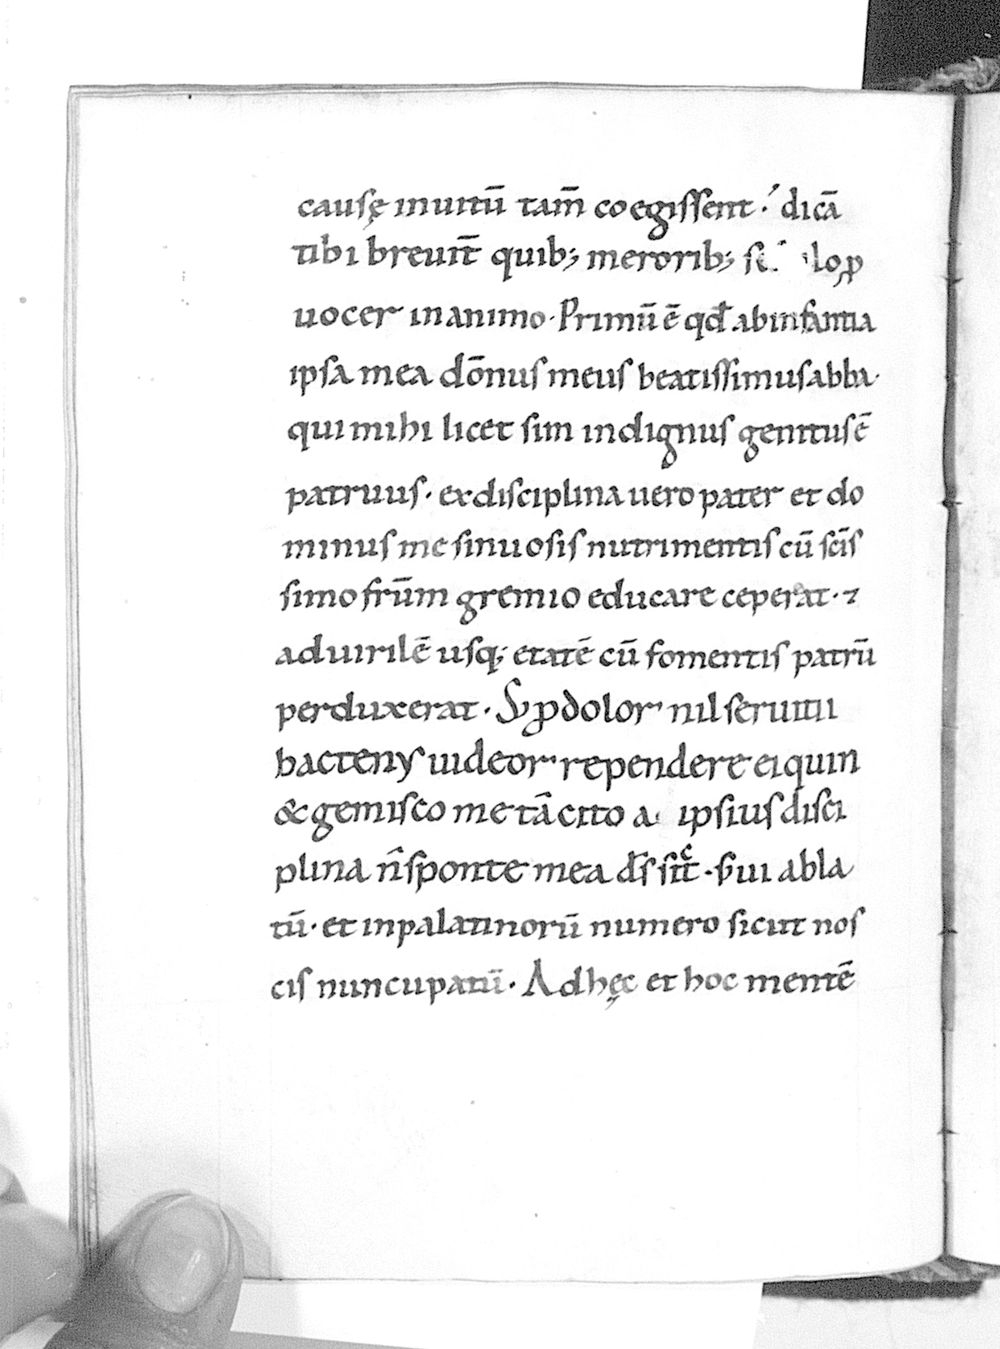 causę inuitū tam̄ coegissent · dicā
tibi breuit̄ quib; meroribus;
uocer in animo · Primū ē qđ ab infantia
ipsa mea dōnus meus beatissimus abba ·
qui mihi licet sim indignus genitus ē
patruus · ex disciplina uero pater et do
minus me sinuosis nutrimentis cū scīs
simo frūm gremio educare ceperat · ⁊
ad uirilē usq; etatē cū fomentis patrū
perduxerat · S; ꝓ dolor nil seruitii
hactenus uideor rependere ei quin
& gemisco me tā cito ab ipsius disci
plina n̄ sponte mea ds̄ sit · s;ui abla
tū · et in palatinorū numero sicut nos
cis nuncupatū · Ad hęc et hoc mentē